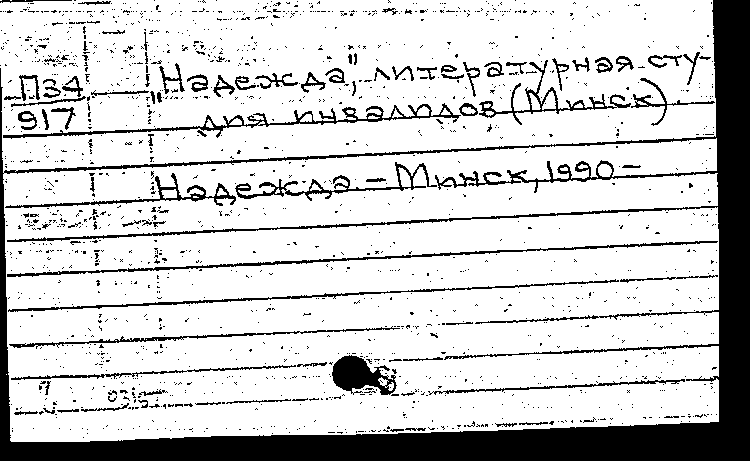 П34
917
"Надежда", литературная сту-
дия инвалидов (Минск).
Надежда. – Минск, 1990 –